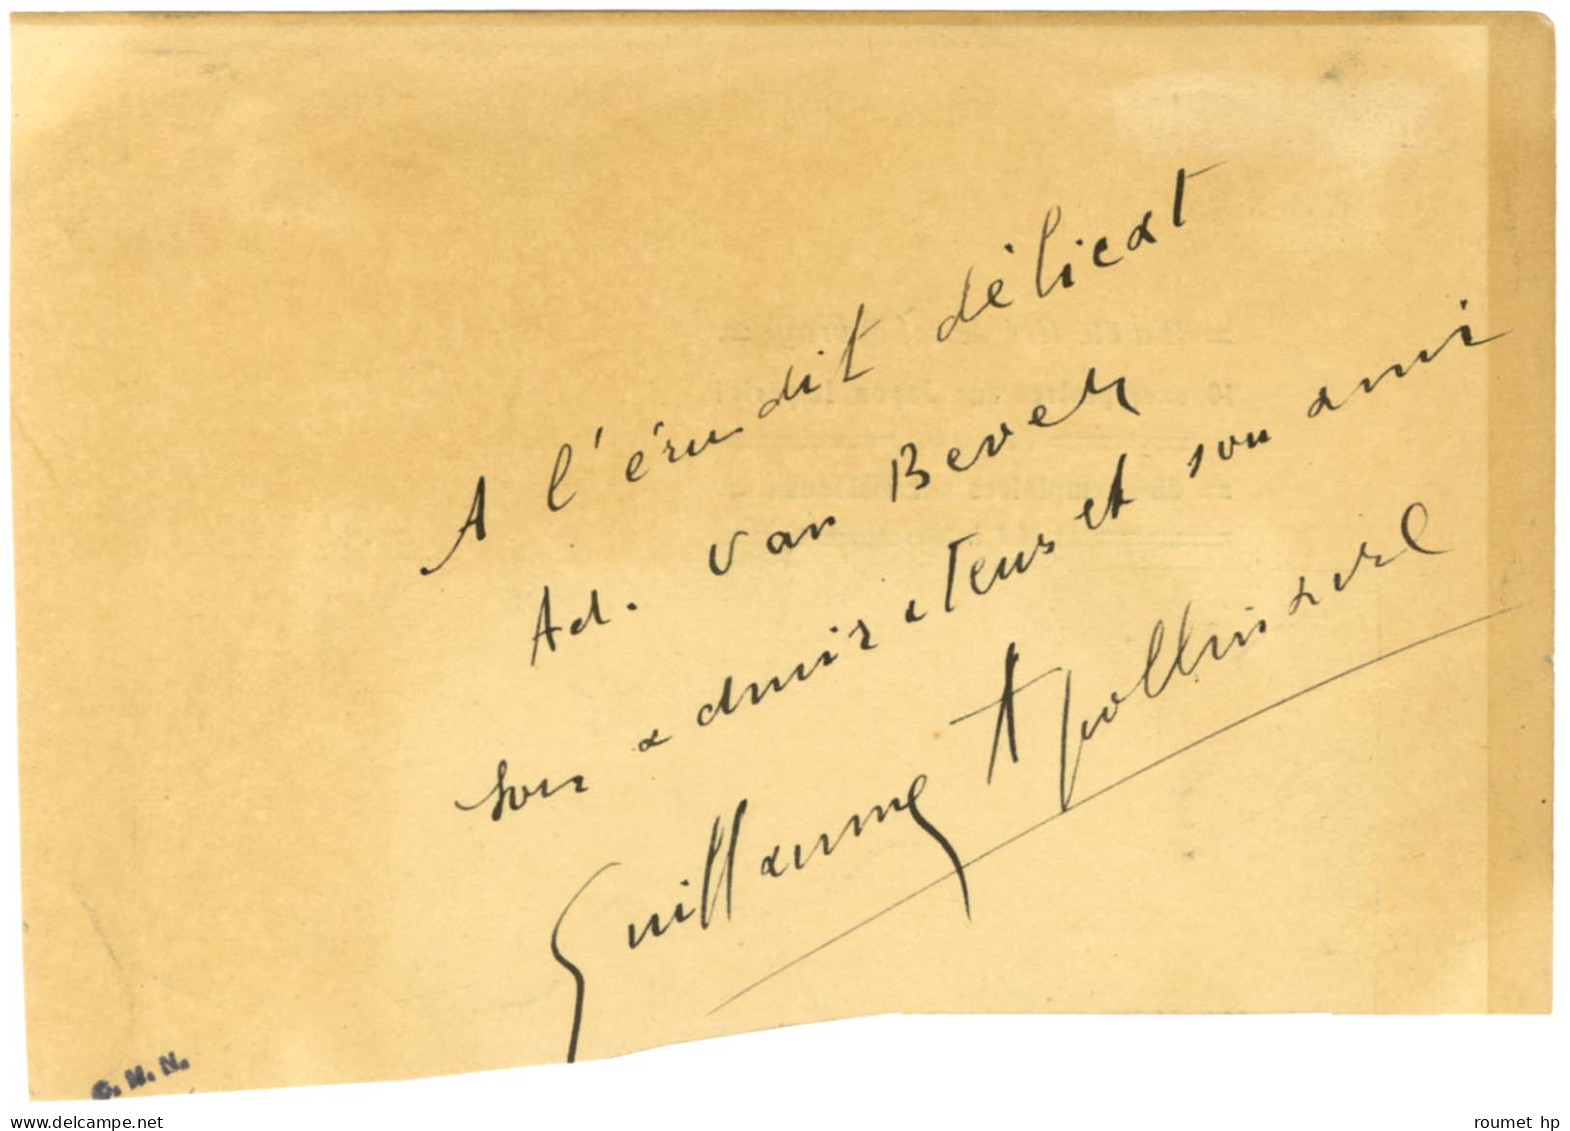 A l'érudit délicat
Ad. van Bever
son admirateur et son ami
Guillaume Apollinaire
10 exemplaires sur Japon
C. N. N.
www.delcampe.net
roumet hp